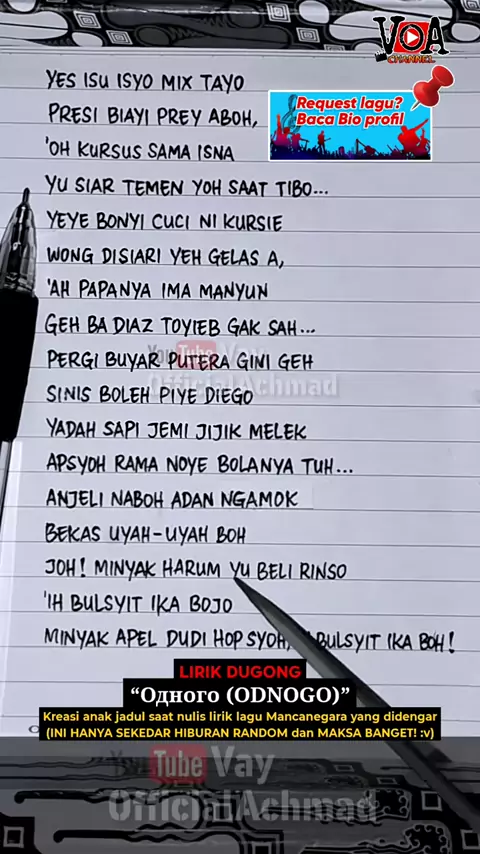 VOA
CHANNEL
Request lagu?
Baca Bio profil
YES ISU ISYO MIX TAYO
PRESI BIAYI PREY ABOH,
'OH KURSUS SAMA ISNA
YU SIAR TEMEN YOH SAAT TIBO...
YEYE BONYI CUCI NI KURSIE
WONG DISIARI YEH GELAS A,
'AH PAPANYA IMA MANYUN
GEH BA DIAZ TOYIEB GAK SAH...
YouTube Vay
PERGI BUYAR PUTERA GINI GEH
OfficialAchmad
SINIS BOLEH PIYE DIEGO
YADAH SAPI JEMI JIJIK MELEK
APSYOH RAMA NOYE BOLANYA TUH...
ANJELI NABOH ADAN NGAMOK
BEKAS UYAH-UYAH BOH
JOH! MINYAK HARUM YU BELI RINSO
'IH BULSYIT IKA BOJO
MINYAK APEL DUDI HOP SYOH, BULSYIT IKA BOH!
LIRIK DUGONG
“Одного (ODNOGO)”
Kreasi anak jadul saat nulis lirik lagu Mancanegara yang didengar
(INI HANYA SEKEDAR HIBURAN RANDOM dan MAKSA BANGET! :v)
Tube Vay
OfficialAchmad